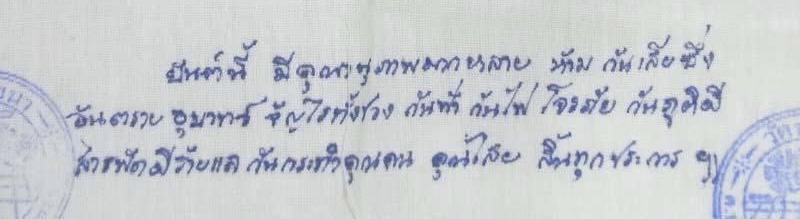 ยันต์นี้ มีคุณานุภาพมากหลาย ห้าม กันเสียซึ่ง
อันตราย อุบาทว์ จัญไรทั้งปวง กันฟ้า กันไฟ โจรภัย กันภูตผี
สารพัดผีร้ายแล กันกระทำคุณคน คุณไสย สิ้นทุกประการ ๚